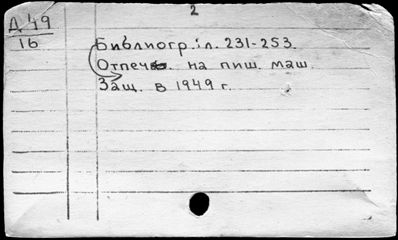 2
Д 49
16
Библиогр.: л. 231-253.
Отпеч. на пиш. маш.
Защ. в 1949 г.